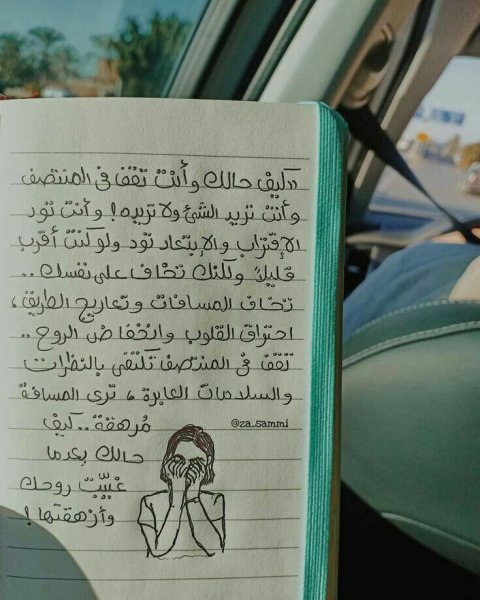 «كيف حالك وأنت تقف في المنتصف
وأنت تريد الشيء ولا تريده! وأنت تود
الإقتراب والإبتعاد تود ولو كنت أقرب
قليلاً ولكنك تخاف على نفسك ..
تخاف المسافات وتعاريج الطريق،
احتراق القلوب وانخفاض الروح ..
تقف في المنتصف تكتفي بالنظرات
والسلامات العابرة، ترى المسافة
مُرهقة .. كيف
@za.sammi
حالك بعدما
غيّبت روحك
وأزهقتها!